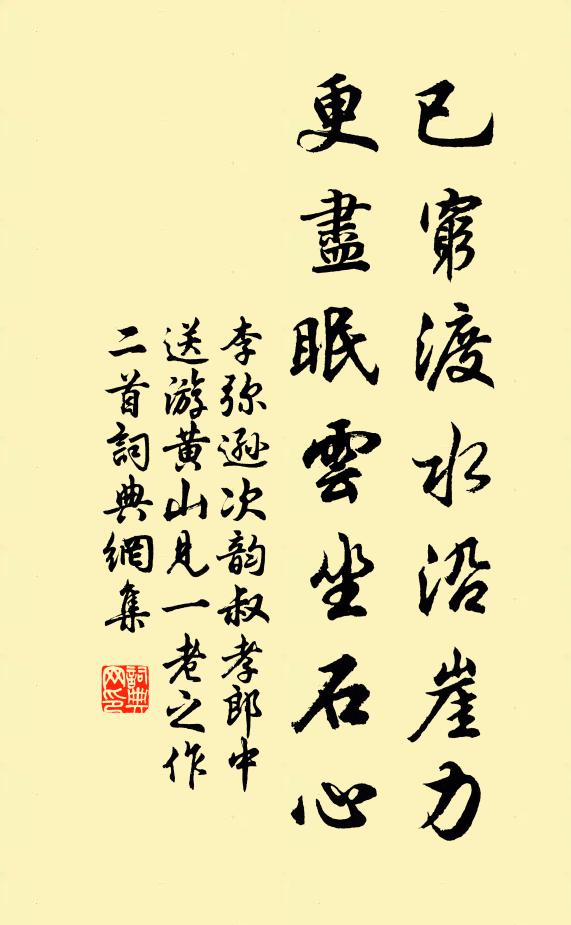 已窮渡水沿崖力
更盡眠雲坐石心
李弥遜次韵叔孝郎中
送游黄山見一老之作
二首詞典網集
詞典网印